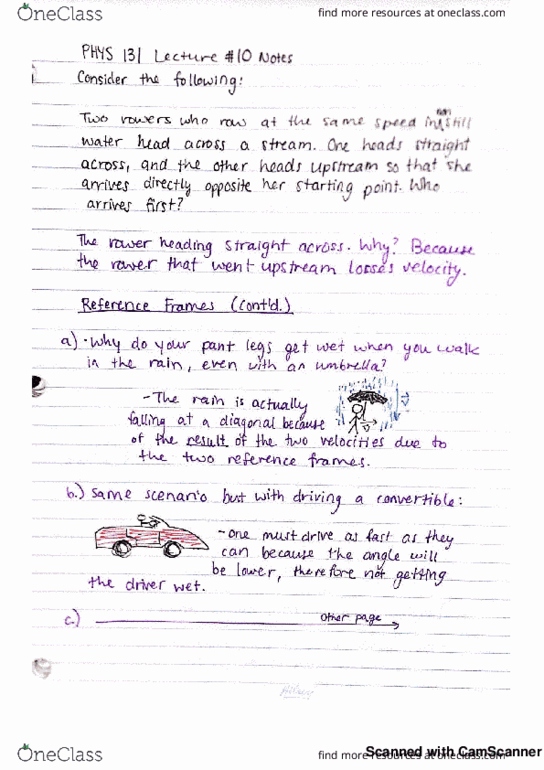 OneClass
find more resources at oneclass.com
PHYS 131 Lecture #10 Notes
Consider the following:
Two rowers who row at the same speed in still
water head across a stream. One heads straight
across, and the other heads upstream so that she
arrives directly opposite her starting point. Who
arrives first?
The rower heading straight across. Why? Because
the rower that went upstream losses velocity.
Reference Frames (cont'd.)
a) · Why do your pant legs get wet when you walk
in the rain, even with an umbrella?
- The rain is actually
falling at a diagonal because
of the result of the two velocities due to
the two reference frames.
b.) Same scenario but with driving a convertible:
- one must drive as fast as they
can because the angle will
be lower, therefore not getting
the driver wet.
c.) other page
OneClass
find more resources at oneclass.com
Scanned with CamScanner